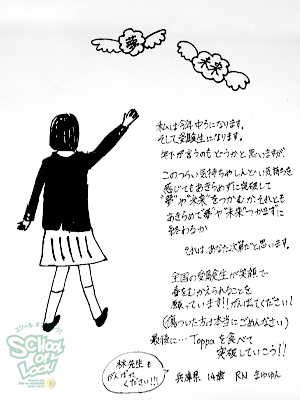 夢
未来
私は今年中3になります。
そして受験生になります。
年下が言うのもどうかと思いますが、
このつらい気持ちやしんどい気持ちを
感じてもあきらめずに突破して
"夢"や"未来"をつかむか、それとも
あきらめて"夢"や"未来"つかまずに
終わるか
それは、あなた次第だと思います。
全国の受験生が笑顔で
春をむかえられることを
願っています!!がんばってください!
(傷ついた方は本当にごめんなさい)
最後に…Toppaを食べて
突破していこう!!
林先生も
がんばって
ください!!!
兵庫県 14歳 RN まゆゆん
SCHOOL
OF
LOCK!